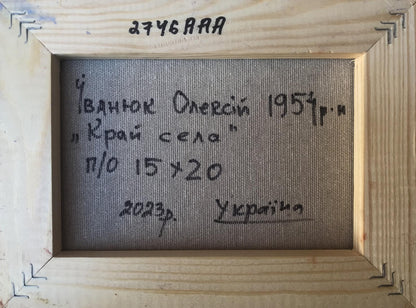 2746AAA
Іванюк Олексій 1954р.н
„Край села"
п/о 15×20
2023р. Україна